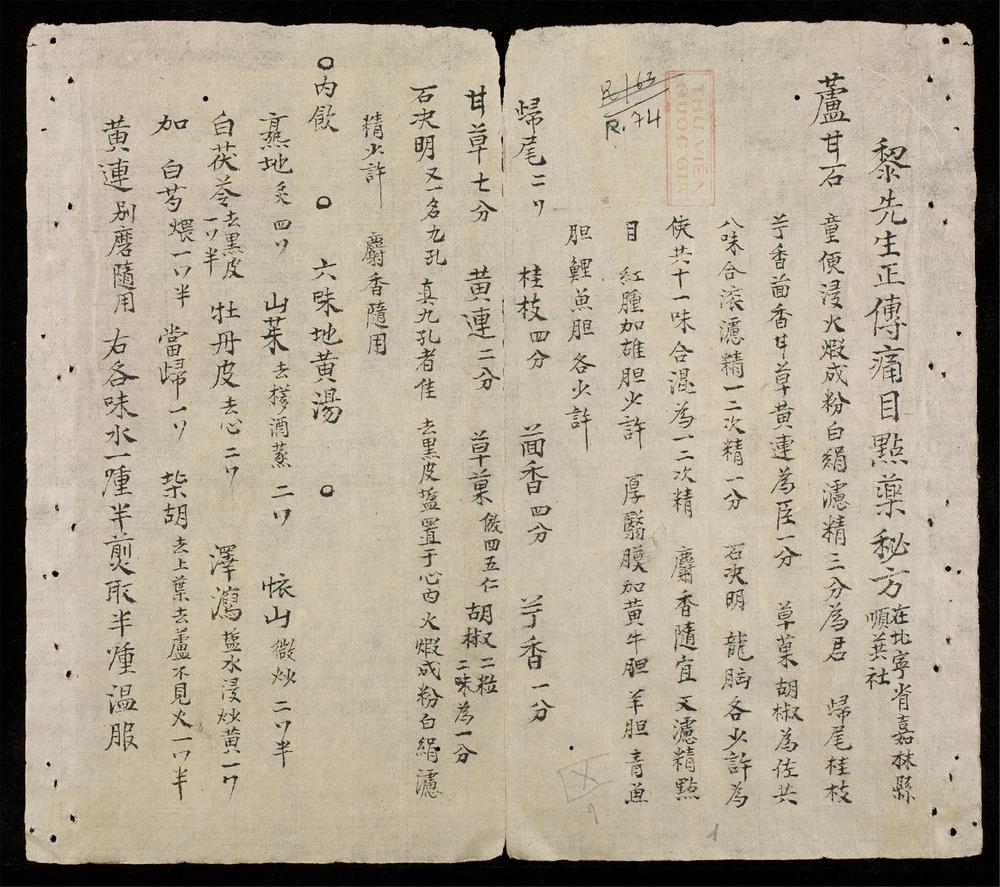 黎先生正傳痛目點藥秘方在北寧省嘉林縣順其社
蘆甘石 童便浸火煆成粉白絹濾精三分為君 歸尾桂枝
芋香茴香甘草黃連為臣一分 草菓胡椒為佐共
八味合滚濾精一二次精一分 石决明 龍腦各少許為
使共十一味合混為一二次精 麝香隨宜又濾精點
目 紅腫加雄胆少許 厚翳膜加黃牛胆羊胆青魚
胆鯉魚胆各少許
歸尾二リ 桂枝四分 茴香四分 芋香一分
甘草七分 黃連二分 草菓煨四五仁 胡椒二粒二味為一分
石决明又一名九孔 真九孔者佳 去黑皮塩置于心內火煆成粉白絹濾
精少許 麝香隨用
○內飲 ○ 六味地黃湯 ○
熹地炙四リ 山茱去核酒蒸二リ 怀山微炒二リ半
白茯苓去黑皮一リ半 牡丹皮去心二リ 澤瀉塩水浸炒黃一リ
加 白芍煨一リ半 當歸一リ 柴胡去上葉去蘆不見火一リ半
黃連別磨隨用 右各味水一㽮半煎取半㽮溫服
THU VIEN
QUOC GIA
R.163
R.74
X
1